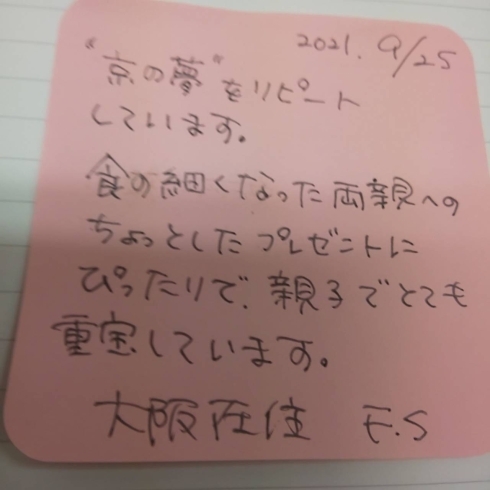 2021. 9/25
"京の夢"をリピート
しています。
食の細くなった両親への
ちょっとしたプレゼントに
ぴったりで、親子でとても
重宝しています。
大阪在住 F.S